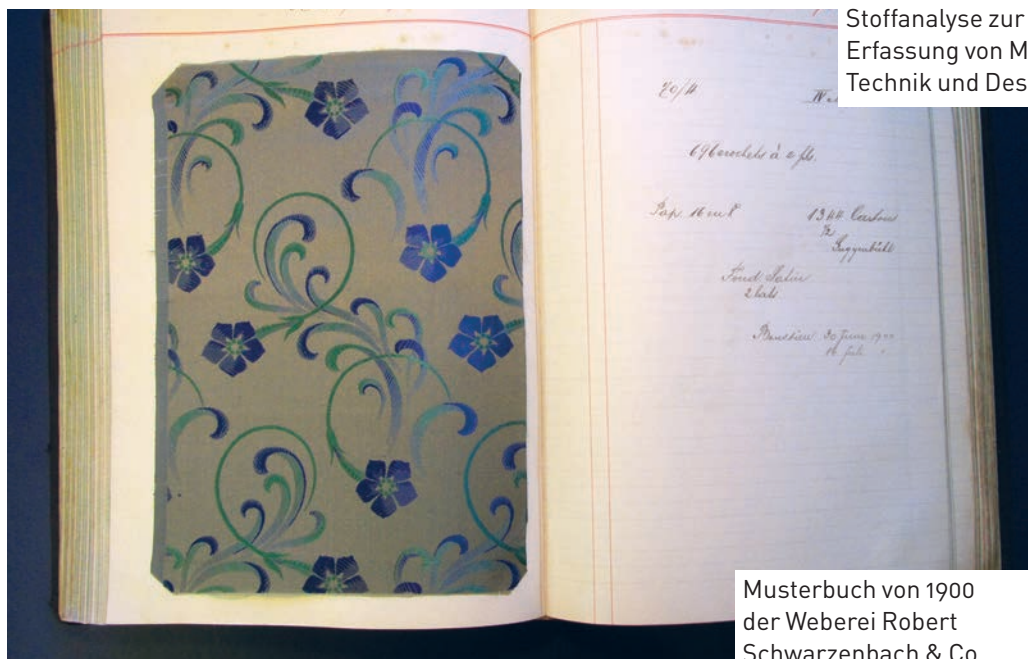 Stoffanalyse zur
Erfassung von M
Technik und Des
70/4
696 crochets à 2 fils.
1344 Cartons
1/2
Fond Satin
2 lats
30 Juni 1900
Musterbuch von 1900
der Weberei Robert
Schwarzenbach & Co